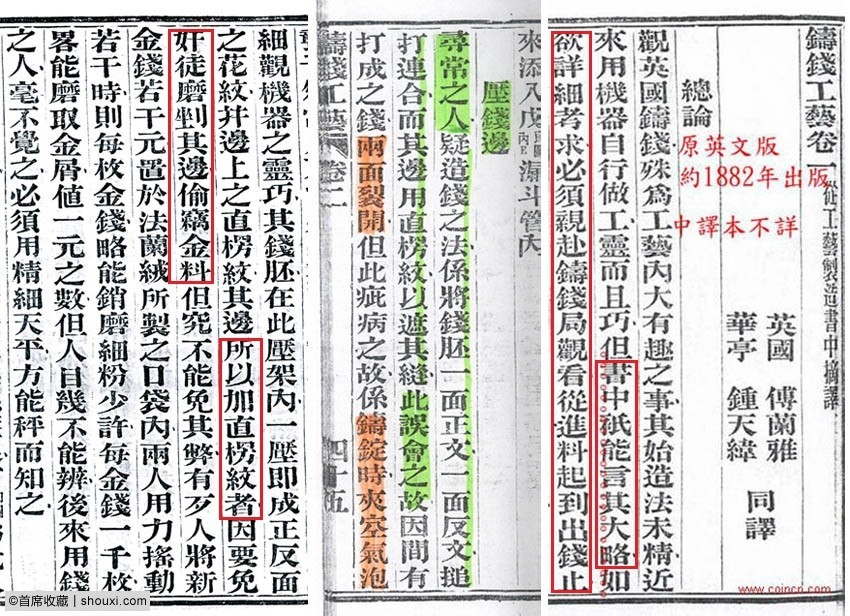 鑄錢工藝卷一 從工藝製造書中摘譯
英國 傅蘭雅
華亭 鍾天緯
同譯
總論
原英文版
約1882年出版
中譯本不詳
觀英國鑄錢殊為工藝內大有趣之事其始造法未精近
來用機器自行做工靈而且巧但書中祇能言其大略如
欲詳細考求必須親赴鑄錢局觀看從進料起到出錢止
www.coincn.com
來添入戊漏斗管內
壓錢邊
尋常之人疑造錢之法係將錢胚一面正文一面反文搥
打連合而其邊用直楞紋以遮其縫此誤會之故因間有
打成之錢兩面裂開但此疵病之故係鑄錠時夾空氣泡
鑄錢工藝 卷二 四十五
細觀機器之靈巧其錢胚在此壓架內一壓即成正反面
之花紋并邊上之直楞紋其邊所以加直楞紋者因要免
奸徒磨剉其邊偷竊金料但究不能免其弊有歹人將新
金錢若干元置於法蘭絨所製之口袋內兩人用力搖動
若干時則每枚金錢略能銷磨細粉少許每金錢一千枚
畧能磨取金屑值一元之數但人目幾不能辨後來用錢
之人毫不覺之必須用精細天平方能秤而知之
©首席收藏 | shouxi.com